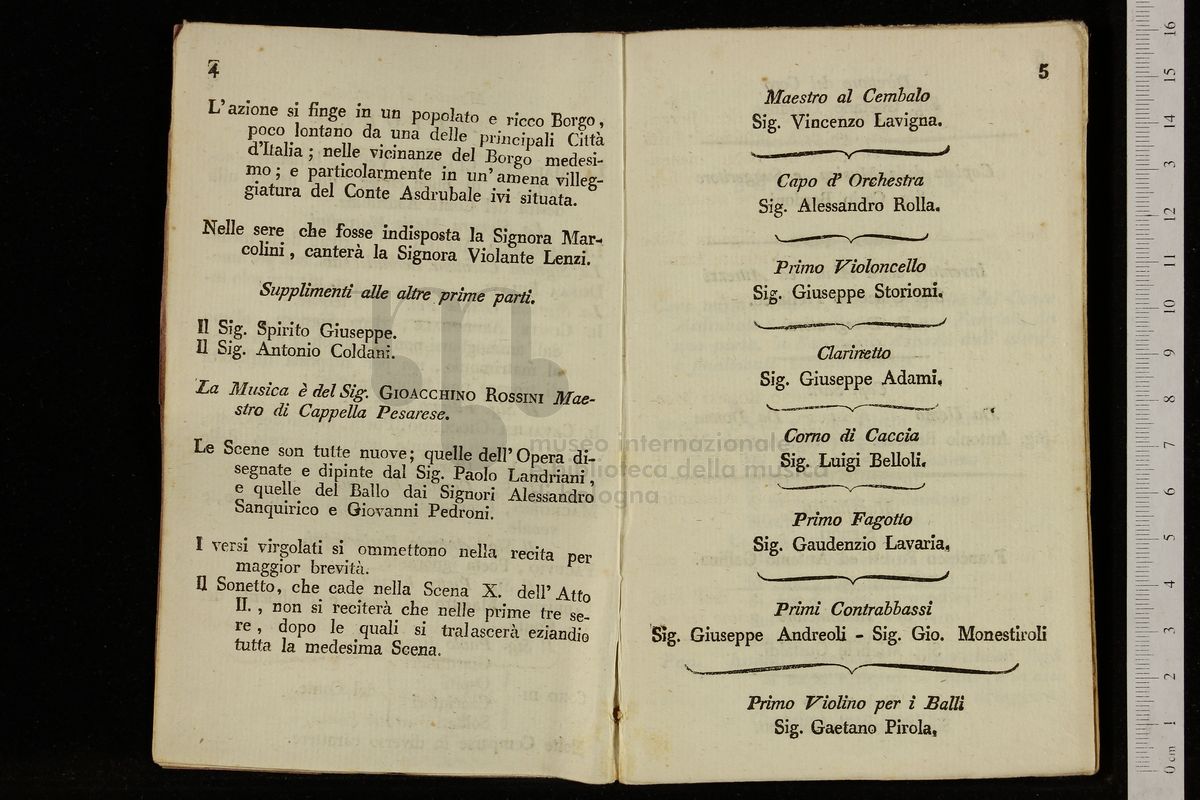 4
L'azione si finge in un popolato e ricco Borgo,
poco lontano da una delle principali Città
d'Italia; nelle vicinanze del Borgo medesi-
mo; e particolarmente in un'amena villeg-
giatura del Conte Asdrubale ivi situata.
Nelle sere che fosse indisposta la Signora Mar-
colini, canterà la Signora Violante Lenzi.
Supplimenti alle altre prime parti.
Il Sig. Spirito Giuseppe.
Il Sig. Antonio Coldani.
La Musica è del Sig. GIOACCHINO ROSSINI Mae-
stro di Cappella Pesarese.
Le Scene son tutte nuove; quelle dell'Opera di-
segnate e dipinte dal Sig. Paolo Landriani,
e quelle del Ballo dai Signori Alessandro
Sanquirico e Giovanni Pedroni.
I versi virgolati si ommettono nella recita per
maggior brevità.
Il Sonetto, che cade nella Scena X. dell'Atto
II., non si reciterà che nelle prime tre se-
re, dopo le quali si tralascerà eziandio
tutta la medesima Scena.
5
Maestro al Cembalo
Sig. Vincenzo Lavigna.
Capo d'Orchestra
Sig. Alessandro Rolla.
Primo Violoncello
Sig. Giuseppe Storioni.
Clarinetto
Sig. Giuseppe Adami.
Corno di Caccia
Sig. Luigi Belloli.
Primo Fagotto
Sig. Gaudenzio Lavaria.
Primi Contrabbassi
Sig. Giuseppe Andreoli - Sig. Gio. Monestiroli
Primo Violino per i Balli
Sig. Gaetano Pirola.
museo internazionale
e biblioteca della musica
di bologna
0 cm 1 2 3 4 5 6 7 8 9 10 11 12 13 14 15 16